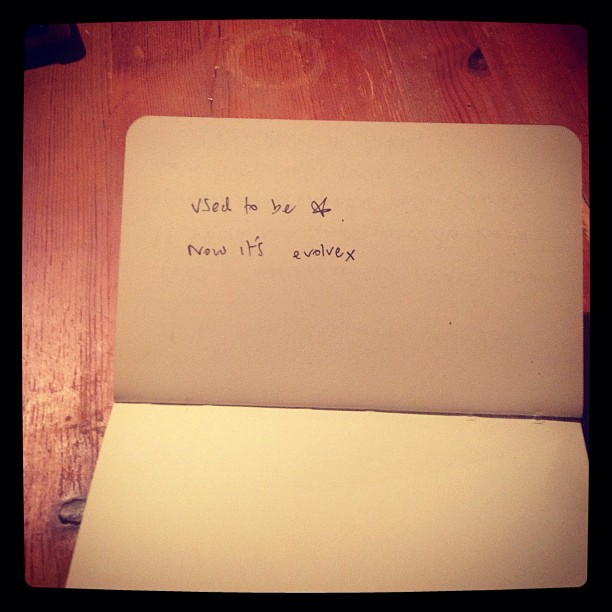 Used to be ☆.
Now it's evolvex